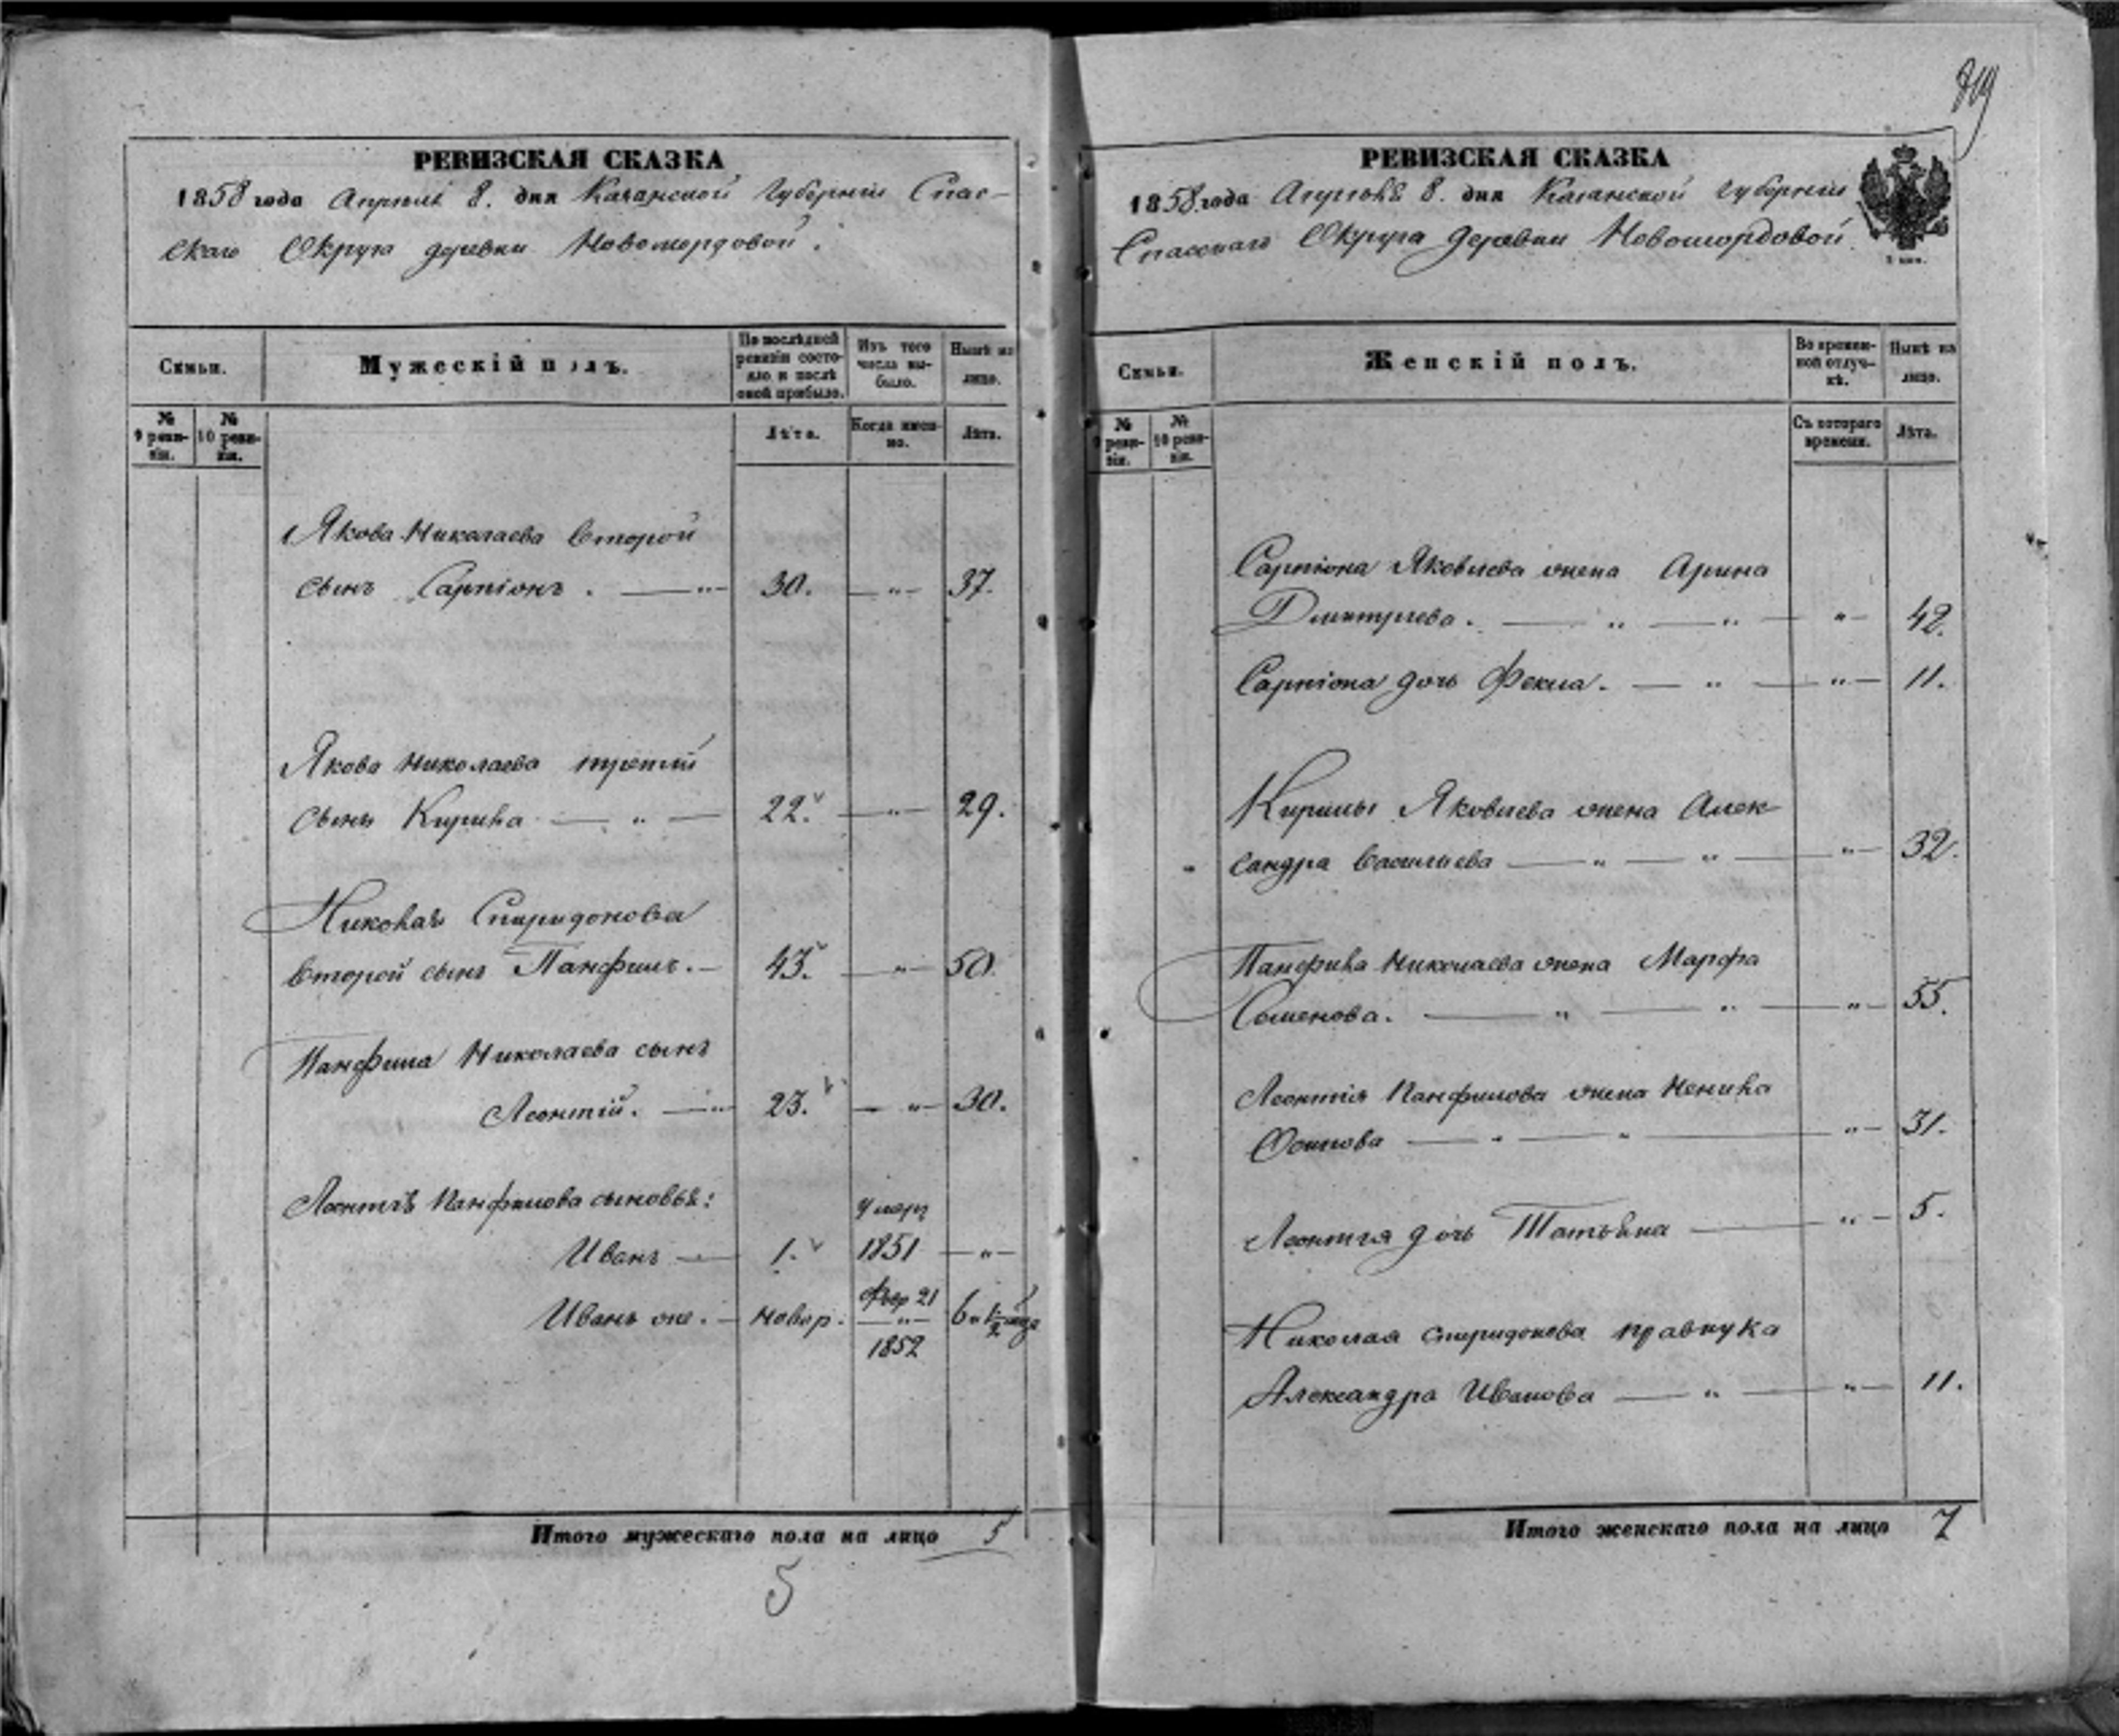 819
РЕВИЗСКАЯ СКАЗКА
1858 года Апреля 8. дня Казанской Губернии Спас-
скаго Округа деревни Новомордовой.
Семьи.
Мужескій полъ.
По послѣдней ревизіи состояло и послѣ оной прибыло.
Изъ того числа выбыло.
Нынѣ на лицо.
№ 9 ревизіи.
№ 10 ревизіи.
Лѣта.
Когда именно.
Лѣта.
Якова Николаева второй
сынъ Сарпіонъ. — " 30. — " — 37.
Якова Николаева третий
сынъ Кирила — " — 22. — " — 29.
Николая Спиридонова
второй сынъ Панфилъ. — 43. — " — 50.
Панфила Николаева сынъ
Леонтій. — " 23. — " — 30.
Леонтія Панфилова сыновья:
Иванъ — 1. 1851 — " —
Иванъ же. — новор. 21 1852
Итого мужескаго пола на лицо 5
5
РЕВИЗСКАЯ СКАЗКА
1858 года Апреля 8. дня Казанской Губернии
Спасскаго Округа деревни Новомордовой
Семьи.
Женскій полъ.
Во временной отлучкѣ.
Нынѣ на лицо.
№ 9 ревизіи.
№ 10 ревизіи.
Съ котораго времени.
Лѣта.
Сарпіона Яковлева жена Арина
Дмитриева. — " — " — " — 42.
Сарпіона дочь Фекла. — " — " — 11.
Кирилы Яковлева жена Алек
сандра Васильева — " — " — " — 32.
Панфила Николаева жена Марфа
Семенова. — " — " — " — 55.
Леонтія Панфилова жена Ненила
Осипова — " — " — " — 31.
Леонтія дочь Татьяна — " — 5.
Николая Спиридонова правнука
Александра Иванова — " — " — 11.
Итого женскаго пола на лицо 7